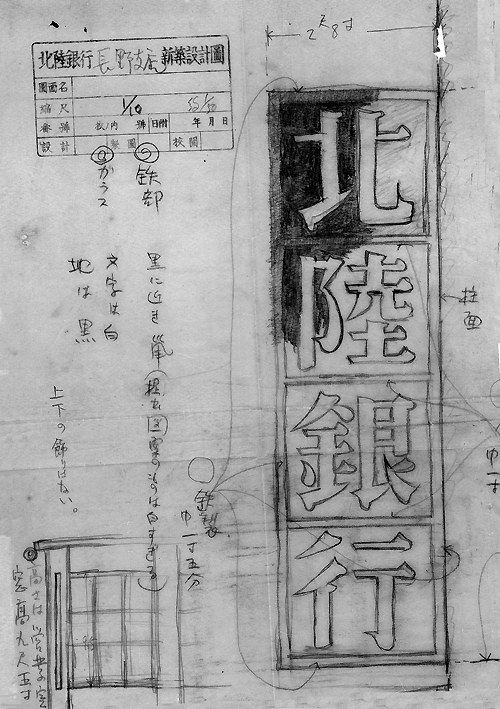 北陸銀行長野支店新築設計圖
圖面名
縮尺 1/10
番號 内 號 日附 年 月 日
設計 製圖 校閲
2尺8寸
北
陸
銀
行
鉄部
ガラス
黒に近き
文字は白
地は黒
上下の飾りはない。
鉄製
巾一寸五分
柱面
巾一寸
高さは営業室
窓高九尺五寸